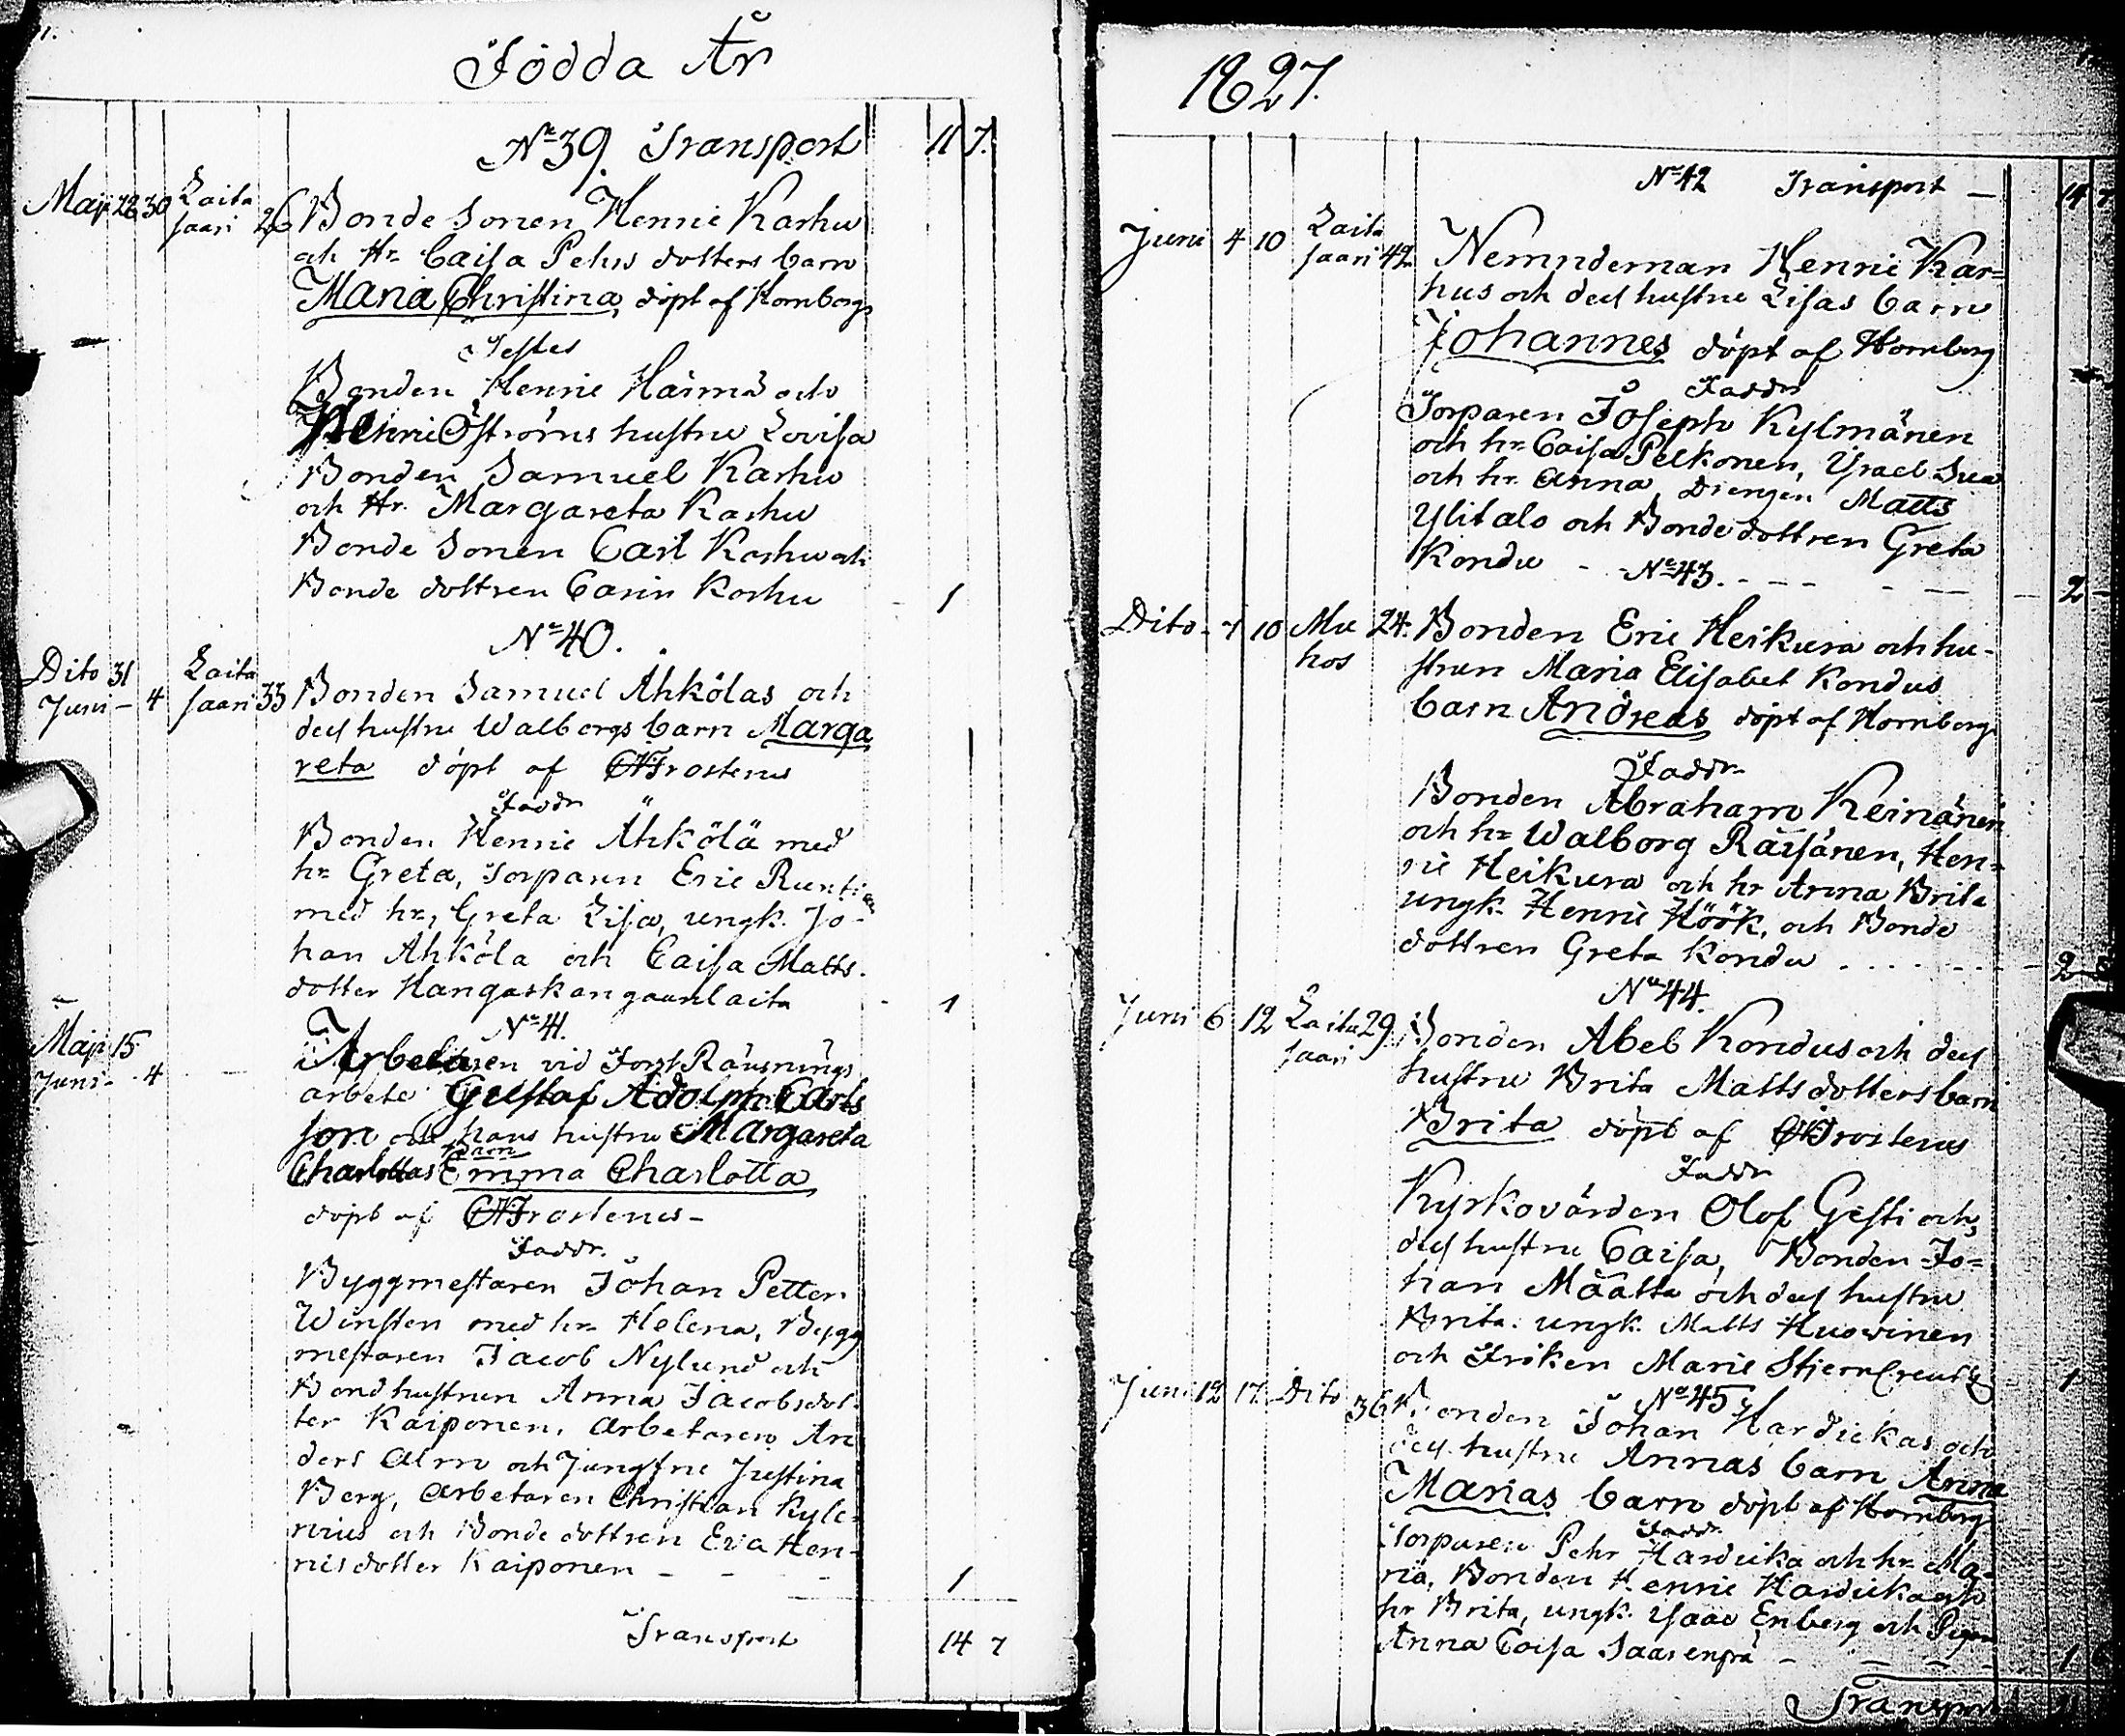 Födda År
No 39. Transport 11 7.
Maji 28 30 Laita
saari 26 Bonde Sonen Henric Karhu
och Hr Caisa Pehrs dotters barn
Maria Christina, döpt af Hornborg
Testes
Bonden Henric Härmä och
Henric Öströms hustru Lovisa
Bonden Samuel Karhu
och Hr Margareta Karhu
Bonde Sonen Carl Karhu och
Bonde dottren Carin Karhu - 1
No 40.
Dito 31 Laita
Juni - 4 saari 33 Bonden Samuel Ahkölas och
dess hustru Walborgs barn Marga
reta döpt af Frosterus
Faddr
Bonden Henric Ähkölä med
hr Greta, Torparen Eric
med hr, Greta Lisa, ungk. Jo-
han Ahköla och Caisa Matts-
dotter Hangaskangaanlaita - 1
No 41.
Maji 15
Juni - 4 Arbetaren vid ForsRänsnings
arbete Gustaf Adolph Carls
son och hans hustru Margareta
Charlottas barn Emma Charlotta
döpt af Frosterus -
Faddr.
Byggmestaren Johan Petter
Winsten med hr Helena, Bygg
mestaren Jacob Nylund och
Bondhustrun Anna Jacobsdot
ter Kaiponen, Arbetaren An
ders Alm och Jungfru Justina
Berg, Arbetaren Christian Kyle-
nius och Bonde dottren Eva Hen-
ricsdotter Kaiponen - - - 1
Transport 14 7
1827.
No 42 Transport - 14 7
Juni 4 10 Laita
saari 42 Nemndeman Henric Kar=
hus och dess hustru Lisas barn
Johannes döpt af Hornborg
Faddr
Torparen Joseph Kylmänen
och hr Caisa Pelkonen, Ysrael
och hr Anna, Drengen Matts
Ylitalo och Bondedottren Greta
Kondu - - - - 2 -
No 43.
Dito - 7 10 Mu 24. Bonden Eric Heikura och hu-
hos strun Maria Elisabet Kondus
barn Andreas döpt af Hornborg
Faddr
Bonden Abraham Keinänen
och hr Walborg Räisänen, Hen=
ric Heikura och hr Anna Brita
ungk. Henric Höök, och Bonde
dottren Greta Kondu - - - 2
No 44.
Juni 6 12 Laita 29. Bonden Abel Kondus och dess
saari hustru Brita Mattsdotters barn
Brita döpt af Frosterus
Faddr
Kyrkovärden Olof Gesti och
dess hustru Caisa, Bonden Jo=
han Määtta och dess hustru
Brita. ungk. Matts Huovinen
och Fröken Marie Stjerncreutz 1
No 45
Juni 12 17. Dito 36 Bonden Johan Hardickas och
dess hustru Annas barn Anna
Marias barn döpt af Hornborg
Faddr.
Torparen Pehr Hardicka och hr Ma-
ria, Bonden Henric Hardicka och
hr Brita, ungk. Isaac Enberg och Pigan
Anna Caisa Saarenpä - - - 1
Transport